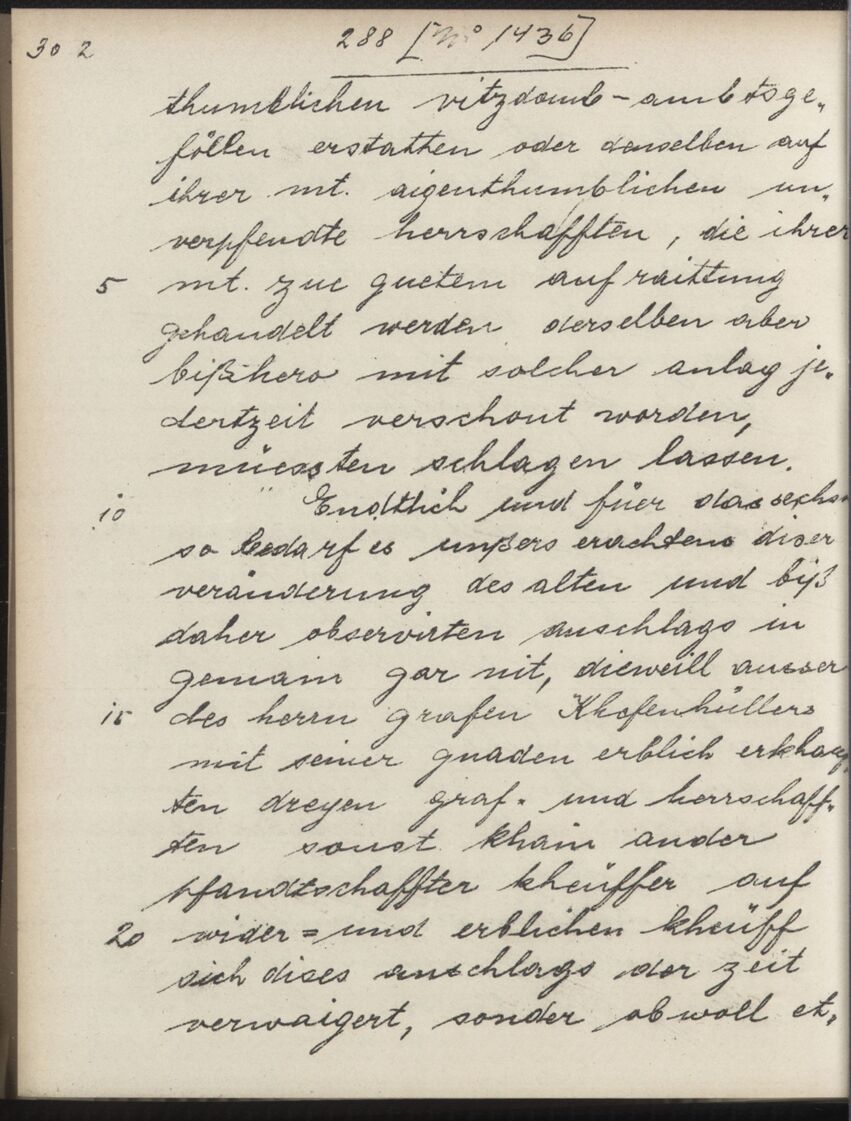 302
288 [No 1436]
thumblichen vitzdomb-ambtsge„
föllen erstatten oder denselben auf
ihrer mt. aigenthumblichen un„
verpfendte herrschafften, die ihrer
5 mt. zue guetem auf raittung
gehandelt werden derselben aber
bißhero mit solcher anlag je„
dertzeit verschont worden,
müessten schlagen lassen.
10 Endtlich und füer das sechs„
so bedarf es unßers erachtens diser
veränderung des alten und biß
daher observirten anschlags in
gemain gar nit, dieweill ausser
15 des herrn grafen Khefenhüllers
mit seiner gnaden erblich erkhauf„
ten dreyen graf- und herrschaff„
ten sonst khain ander
pfandtschaffter kheüffer auf
20 wider= und erblichen kheüff
sich dises anschlags der zeit
verwaigert, sonder obwoll et„